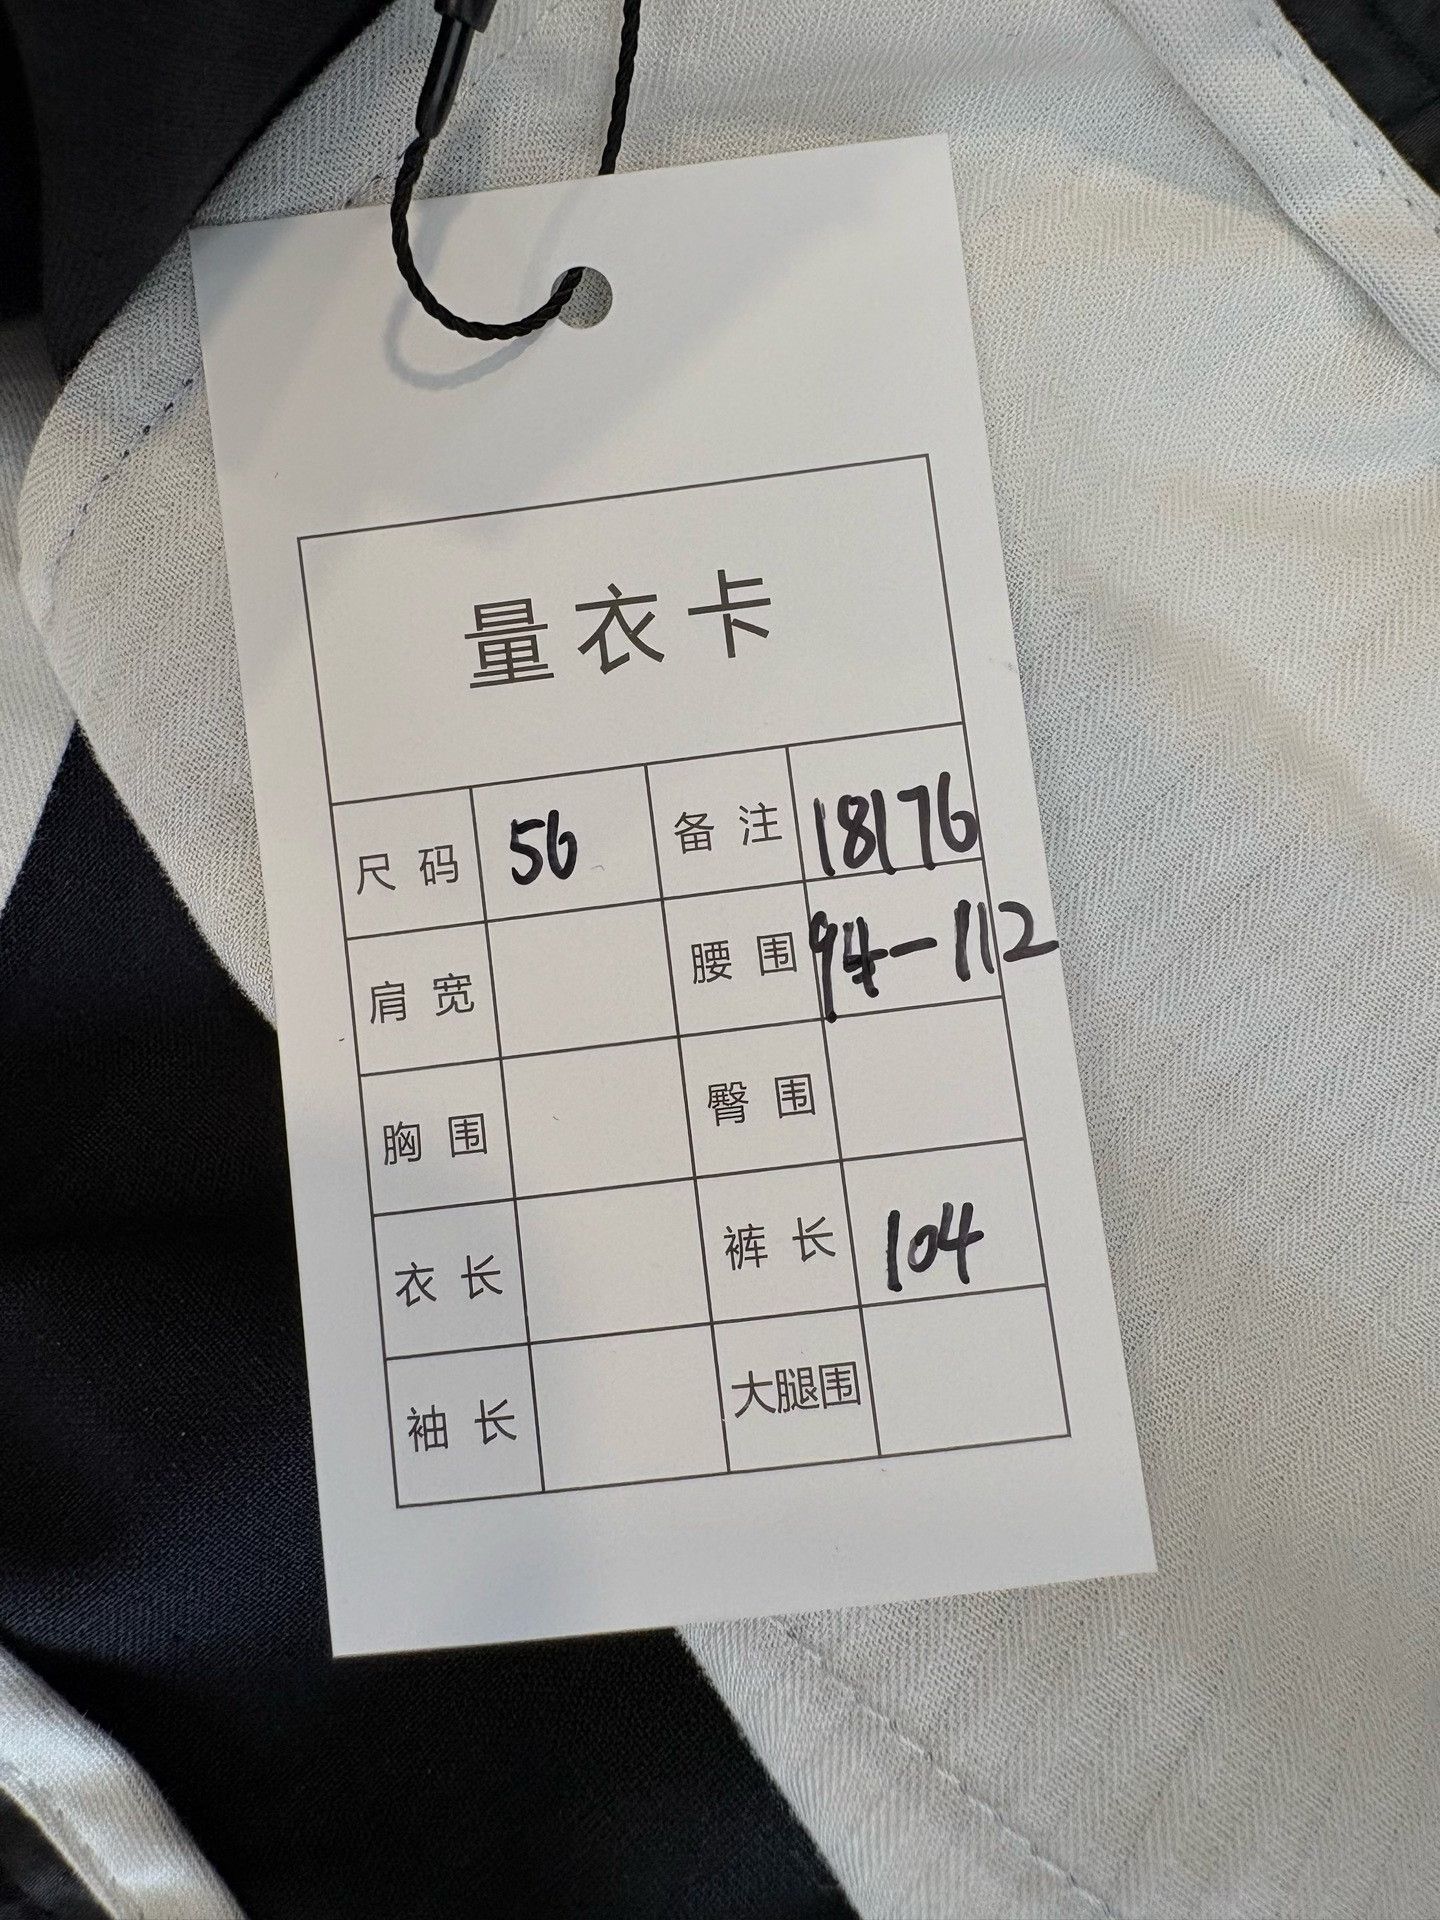 量衣卡
尺码 56 备注 18176
肩宽 腰围 94-112
胸围 臀围
衣长 裤长 104
袖长 大腿围